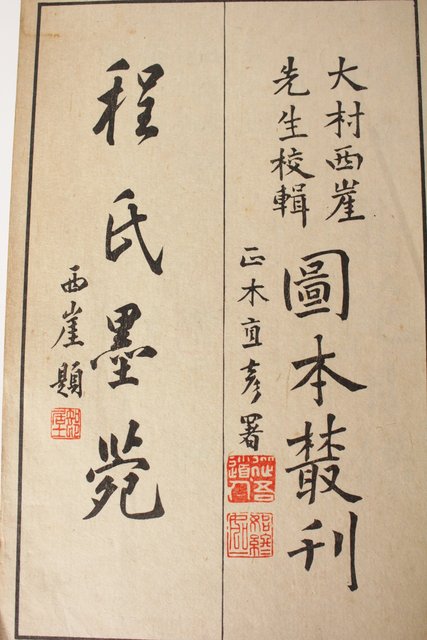 大村西崖
先生校輯
圖本叢刊
正木直彦署
程氏墨苑
西崖題